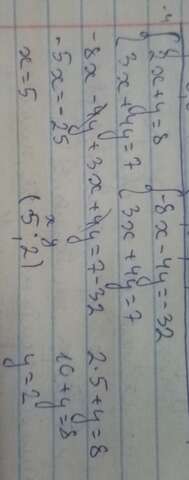 -4 { 2x+y=8 { -8x-4y=-32
{ 3x+4y=7 { 3x+4y=7
-8x-4y+3x+4y=7-32 2·5+y=8
-5x=-25 10+y=8
x y
x=5 (5;2) y=2